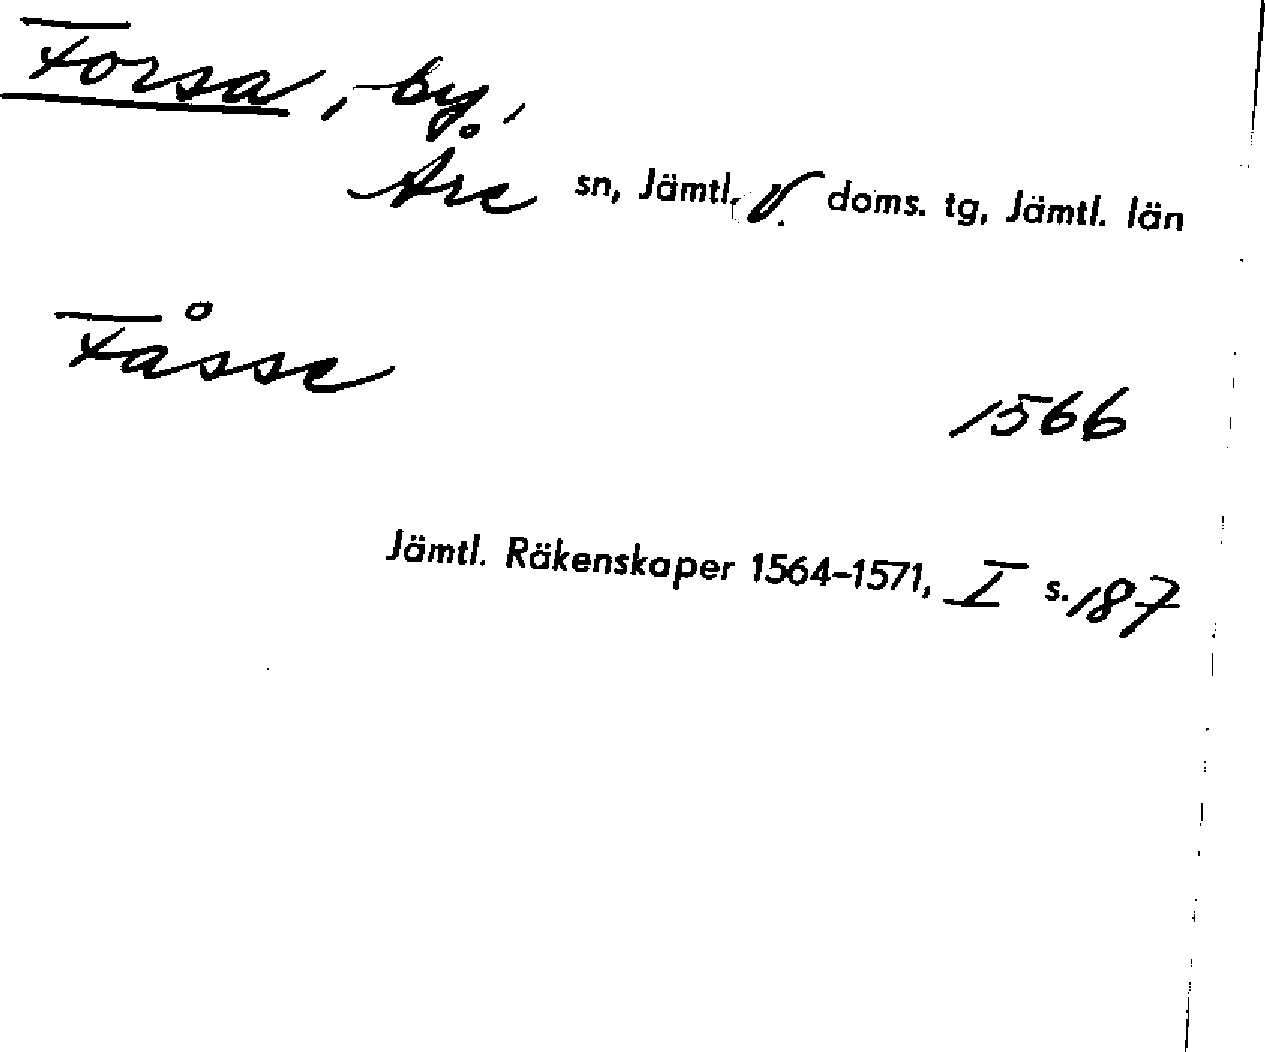 Forsa, by,
Åre sn, Jämtl. V. doms. tg, Jämtl. län
Fåsse
1566
Jämtl. Räkenskaper 1564-1571, I s. 187